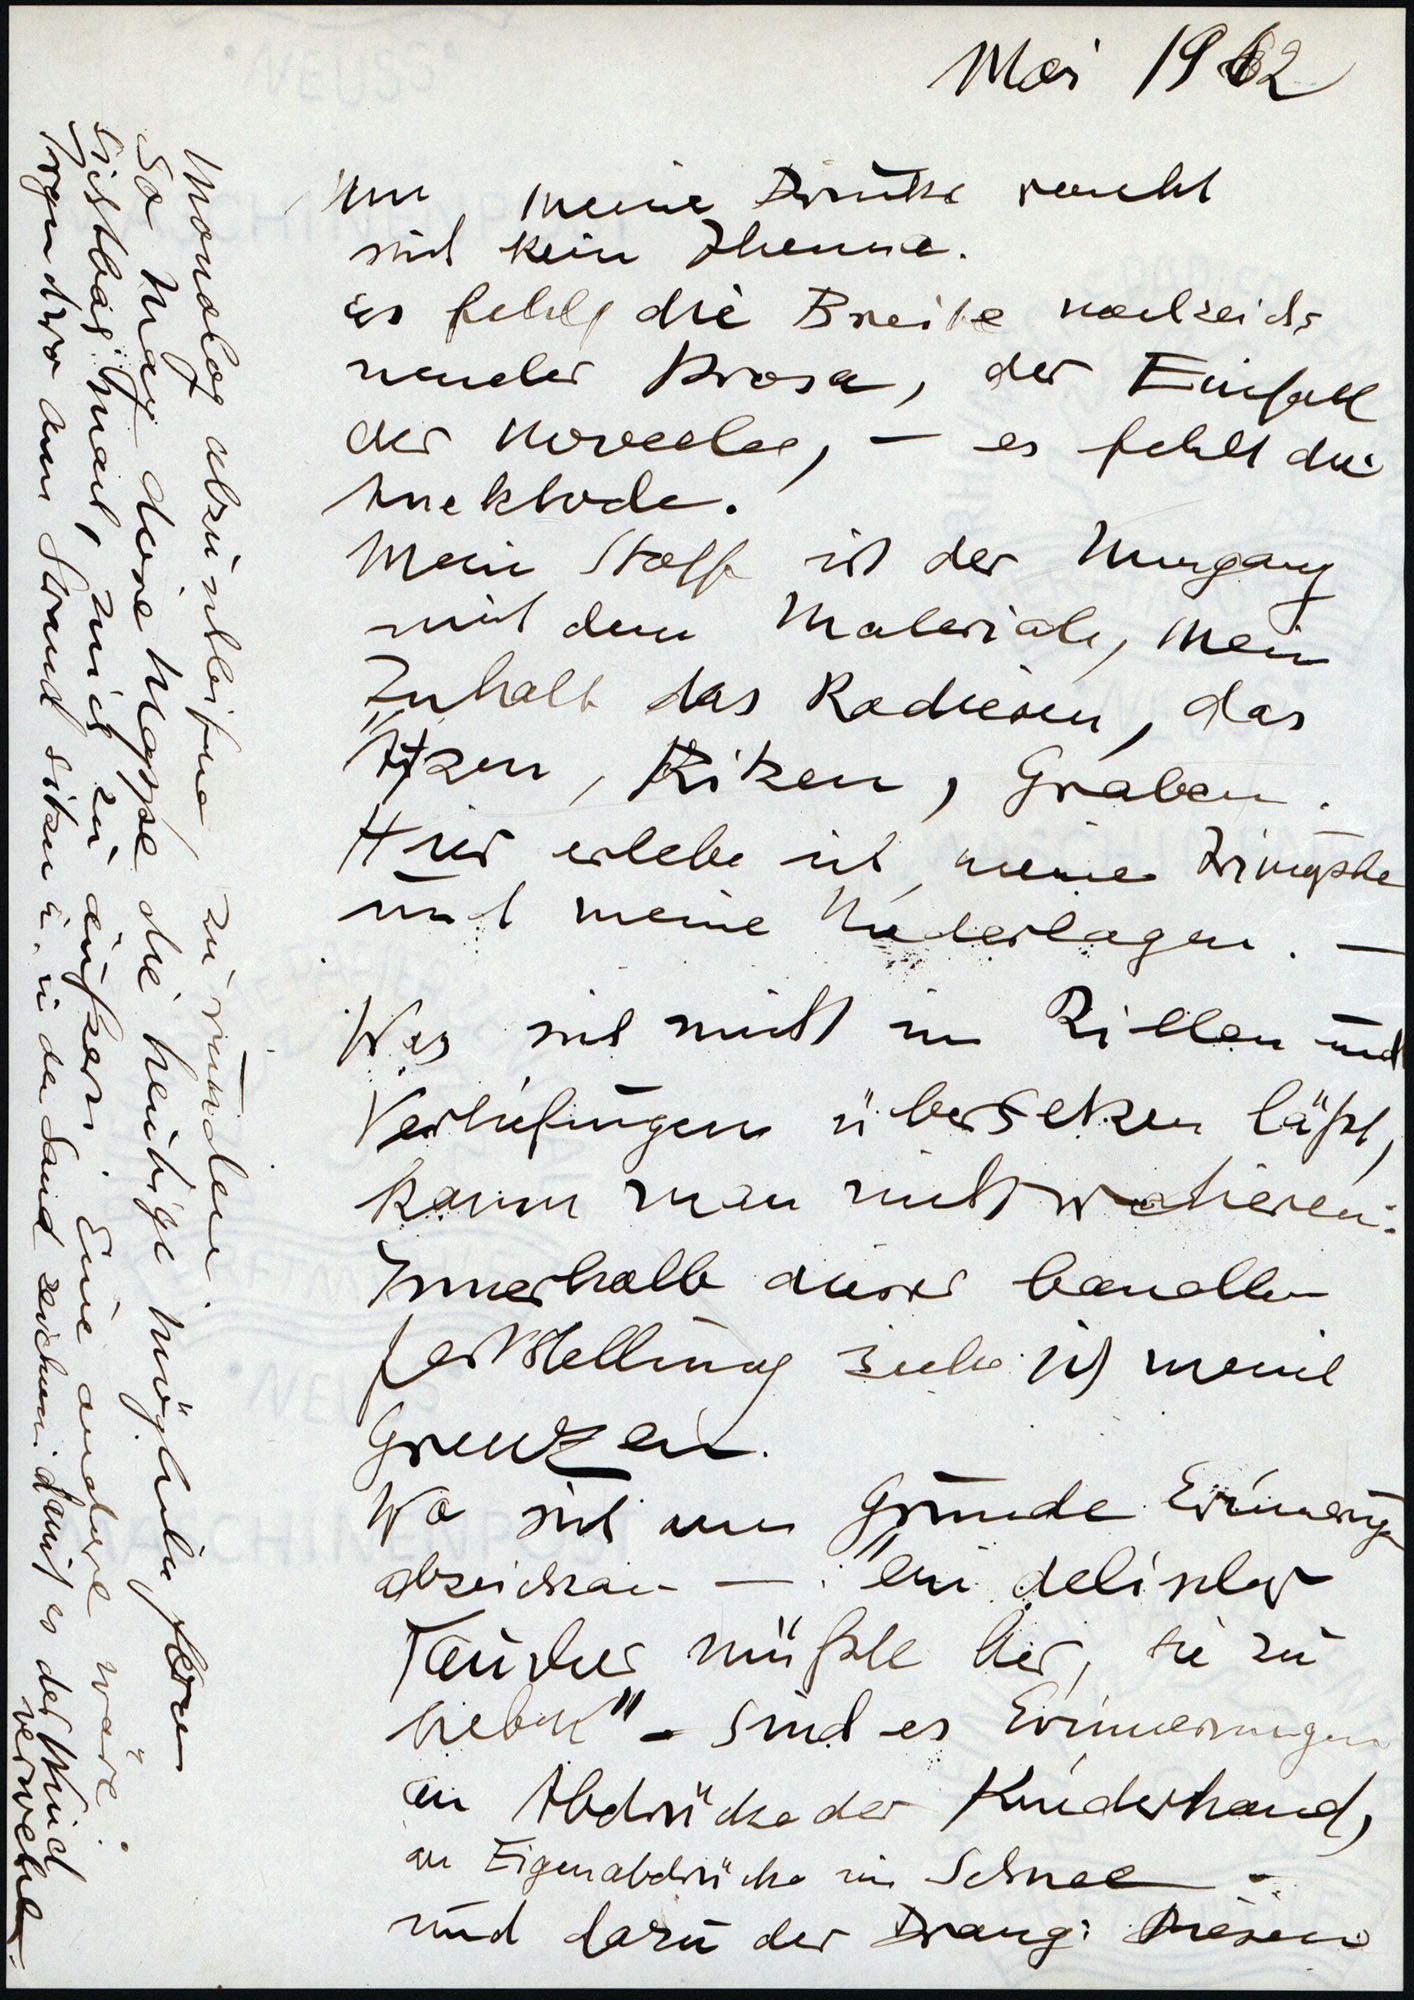 Mai 1962
Um meine Drucke rankt
sich kein Thema.
es fehlt die Breite nachzeich
nender Prosa, der Einfall
der Novelle, – es fehlt die
Anekdode.
Mein Stoff ist der Umgang
mit dem Materiale, mein
Inhalt das Radieren, das
Ätzen, Ritzen, Graben.
Hier erlebe ich meine Triumphe
und meine Niederlagen. –
Was sich nicht in Rillen und
Vertiefungen übersetzen läßt,
kann man nicht radieren:
Innerhalb dieser banalen
Feststellung ziehe ich meine
Grenzen.
Wo sich am Grunde Erinnerungen
abzeichnen – "ein delischer
Taucher müßte her, sie zu
heben" – sind es Erinnerungen
an Abdrücke der Kinderhand,
an Eigenabdrücke im Schnee –
und dazu der Drang: Diesen
Monolog abzuschleifen zu runden.
So mag diese Mappe die heutige Möglichkeit sein
mich zu äußern. Eine andere wäre:
Irgendwo am Strand sitzen u. in den Sand zeichnen damit es der Wind
verwehe.
MASCHINENPOST
NEUSS